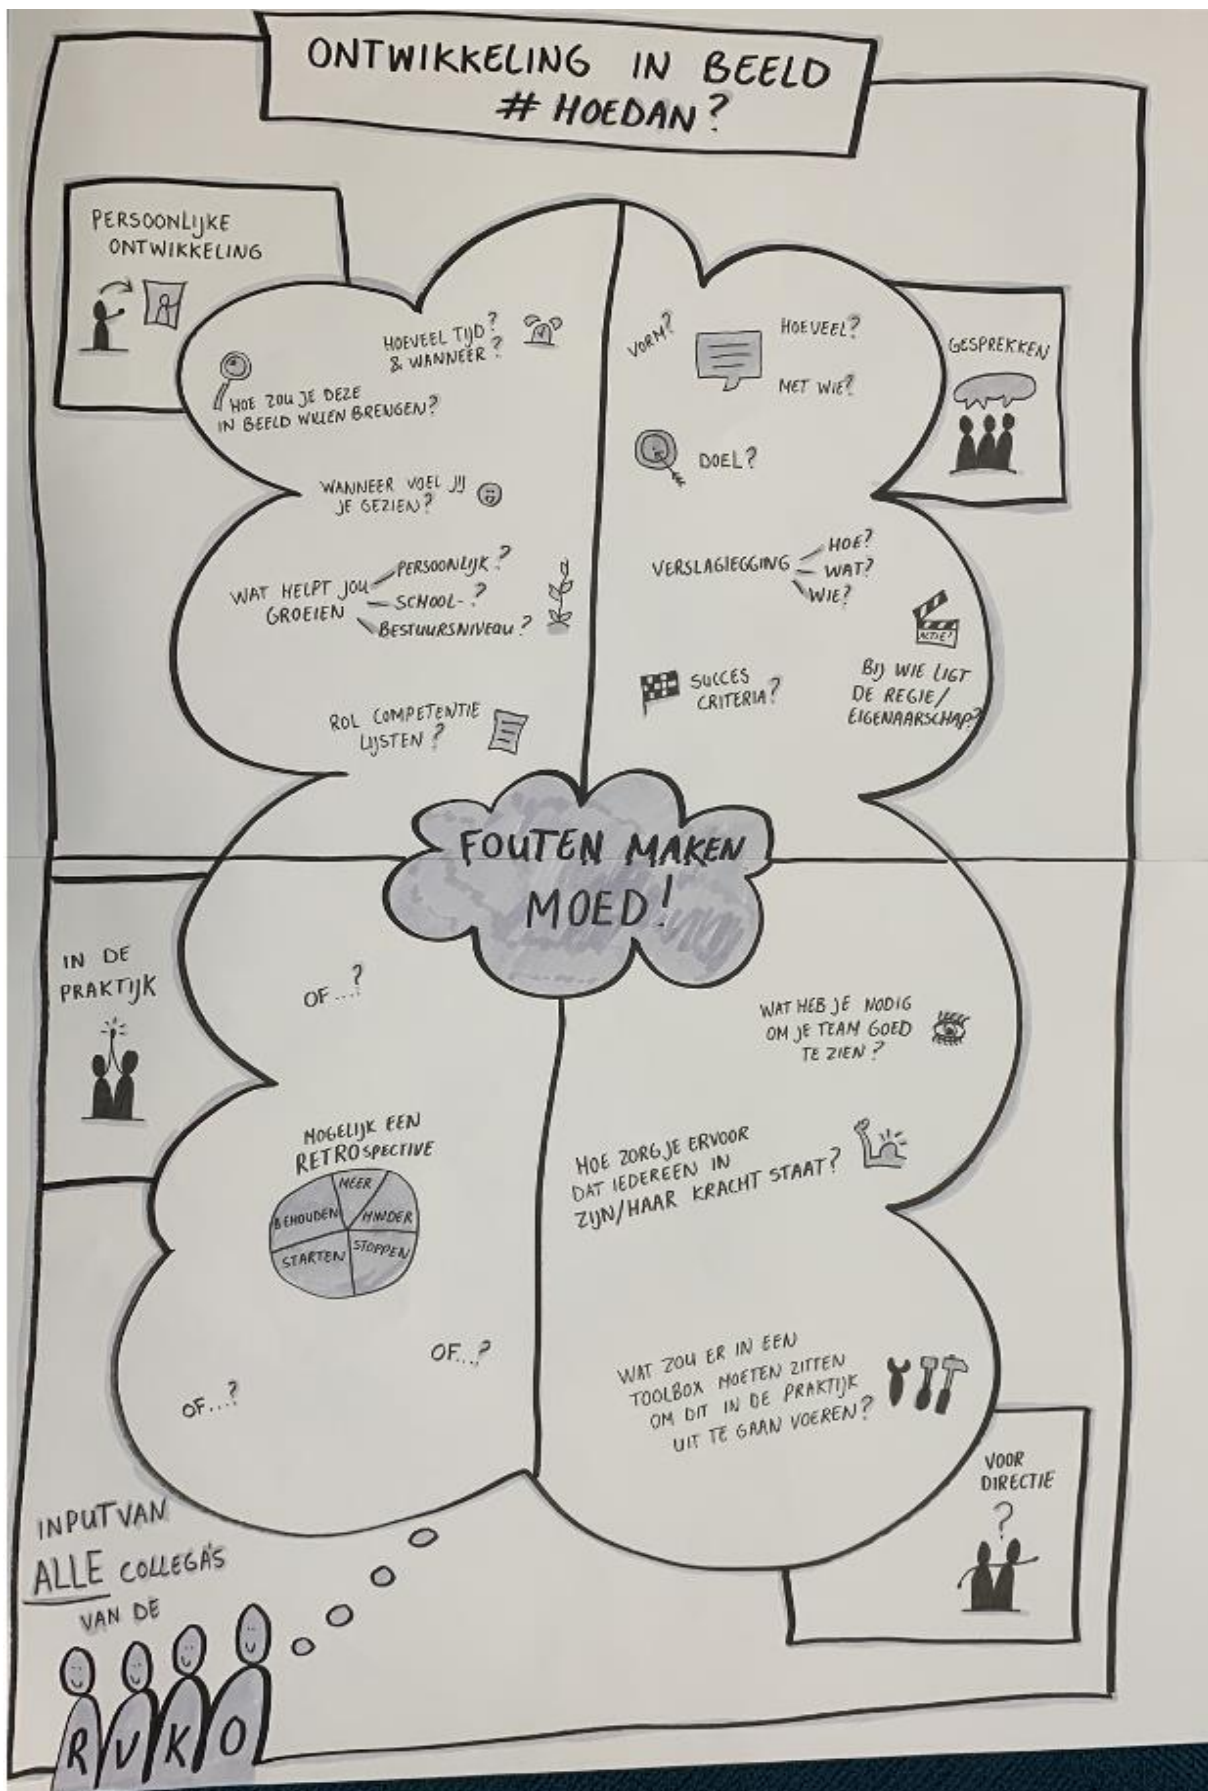 ONTWIKKELING IN BEELD
# HOEDAN?
PERSOONLIJKE
ONTWIKKELING
HOEVEEL TIJD?
& WANNEER?
HOE ZOU JE DEZE
IN BEELD WILLEN BRENGEN?
WANNEER VOEL JIJ
JE GEZIEN?
WAT HELPT JOU
GROEIEN
PERSOONLIJK?
SCHOOL-?
BESTUURSNIVEAU?
ROL COMPETENTIE
LIJSTEN?
VORM?
HOEVEEL?
MET WIE?
GESPREKKEN
DOEL?
VERSLAGLEGGING
HOE?
WAT?
WIE?
ACTIE!
BIJ WIE LIGT
DE REGIE/
EIGENAARSCHAP?
SUCCES
CRITERIA?
FOUTEN MAKEN
MOED!
IN DE
PRAKTIJK
OF...?
MOGELIJK EEN
RETROSPECTIVE
MEER
BEHOUDEN
MINDER
STARTEN
STOPPEN
OF...?
OF...?
WAT HEB JE NODIG
OM JE TEAM GOED
TE ZIEN?
HOE ZORG JE ERVOOR
DAT IEDEREEN IN
ZIJN/HAAR KRACHT STAAT?
WAT ZOU ER IN EEN
TOOLBOX MOETEN ZITTEN
OM DIT IN DE PRAKTIJK
UIT TE GAAN VOEREN?
VOOR
DIRECTIE
?
INPUT VAN
ALLE COLLEGA'S
VAN DE
RVKO